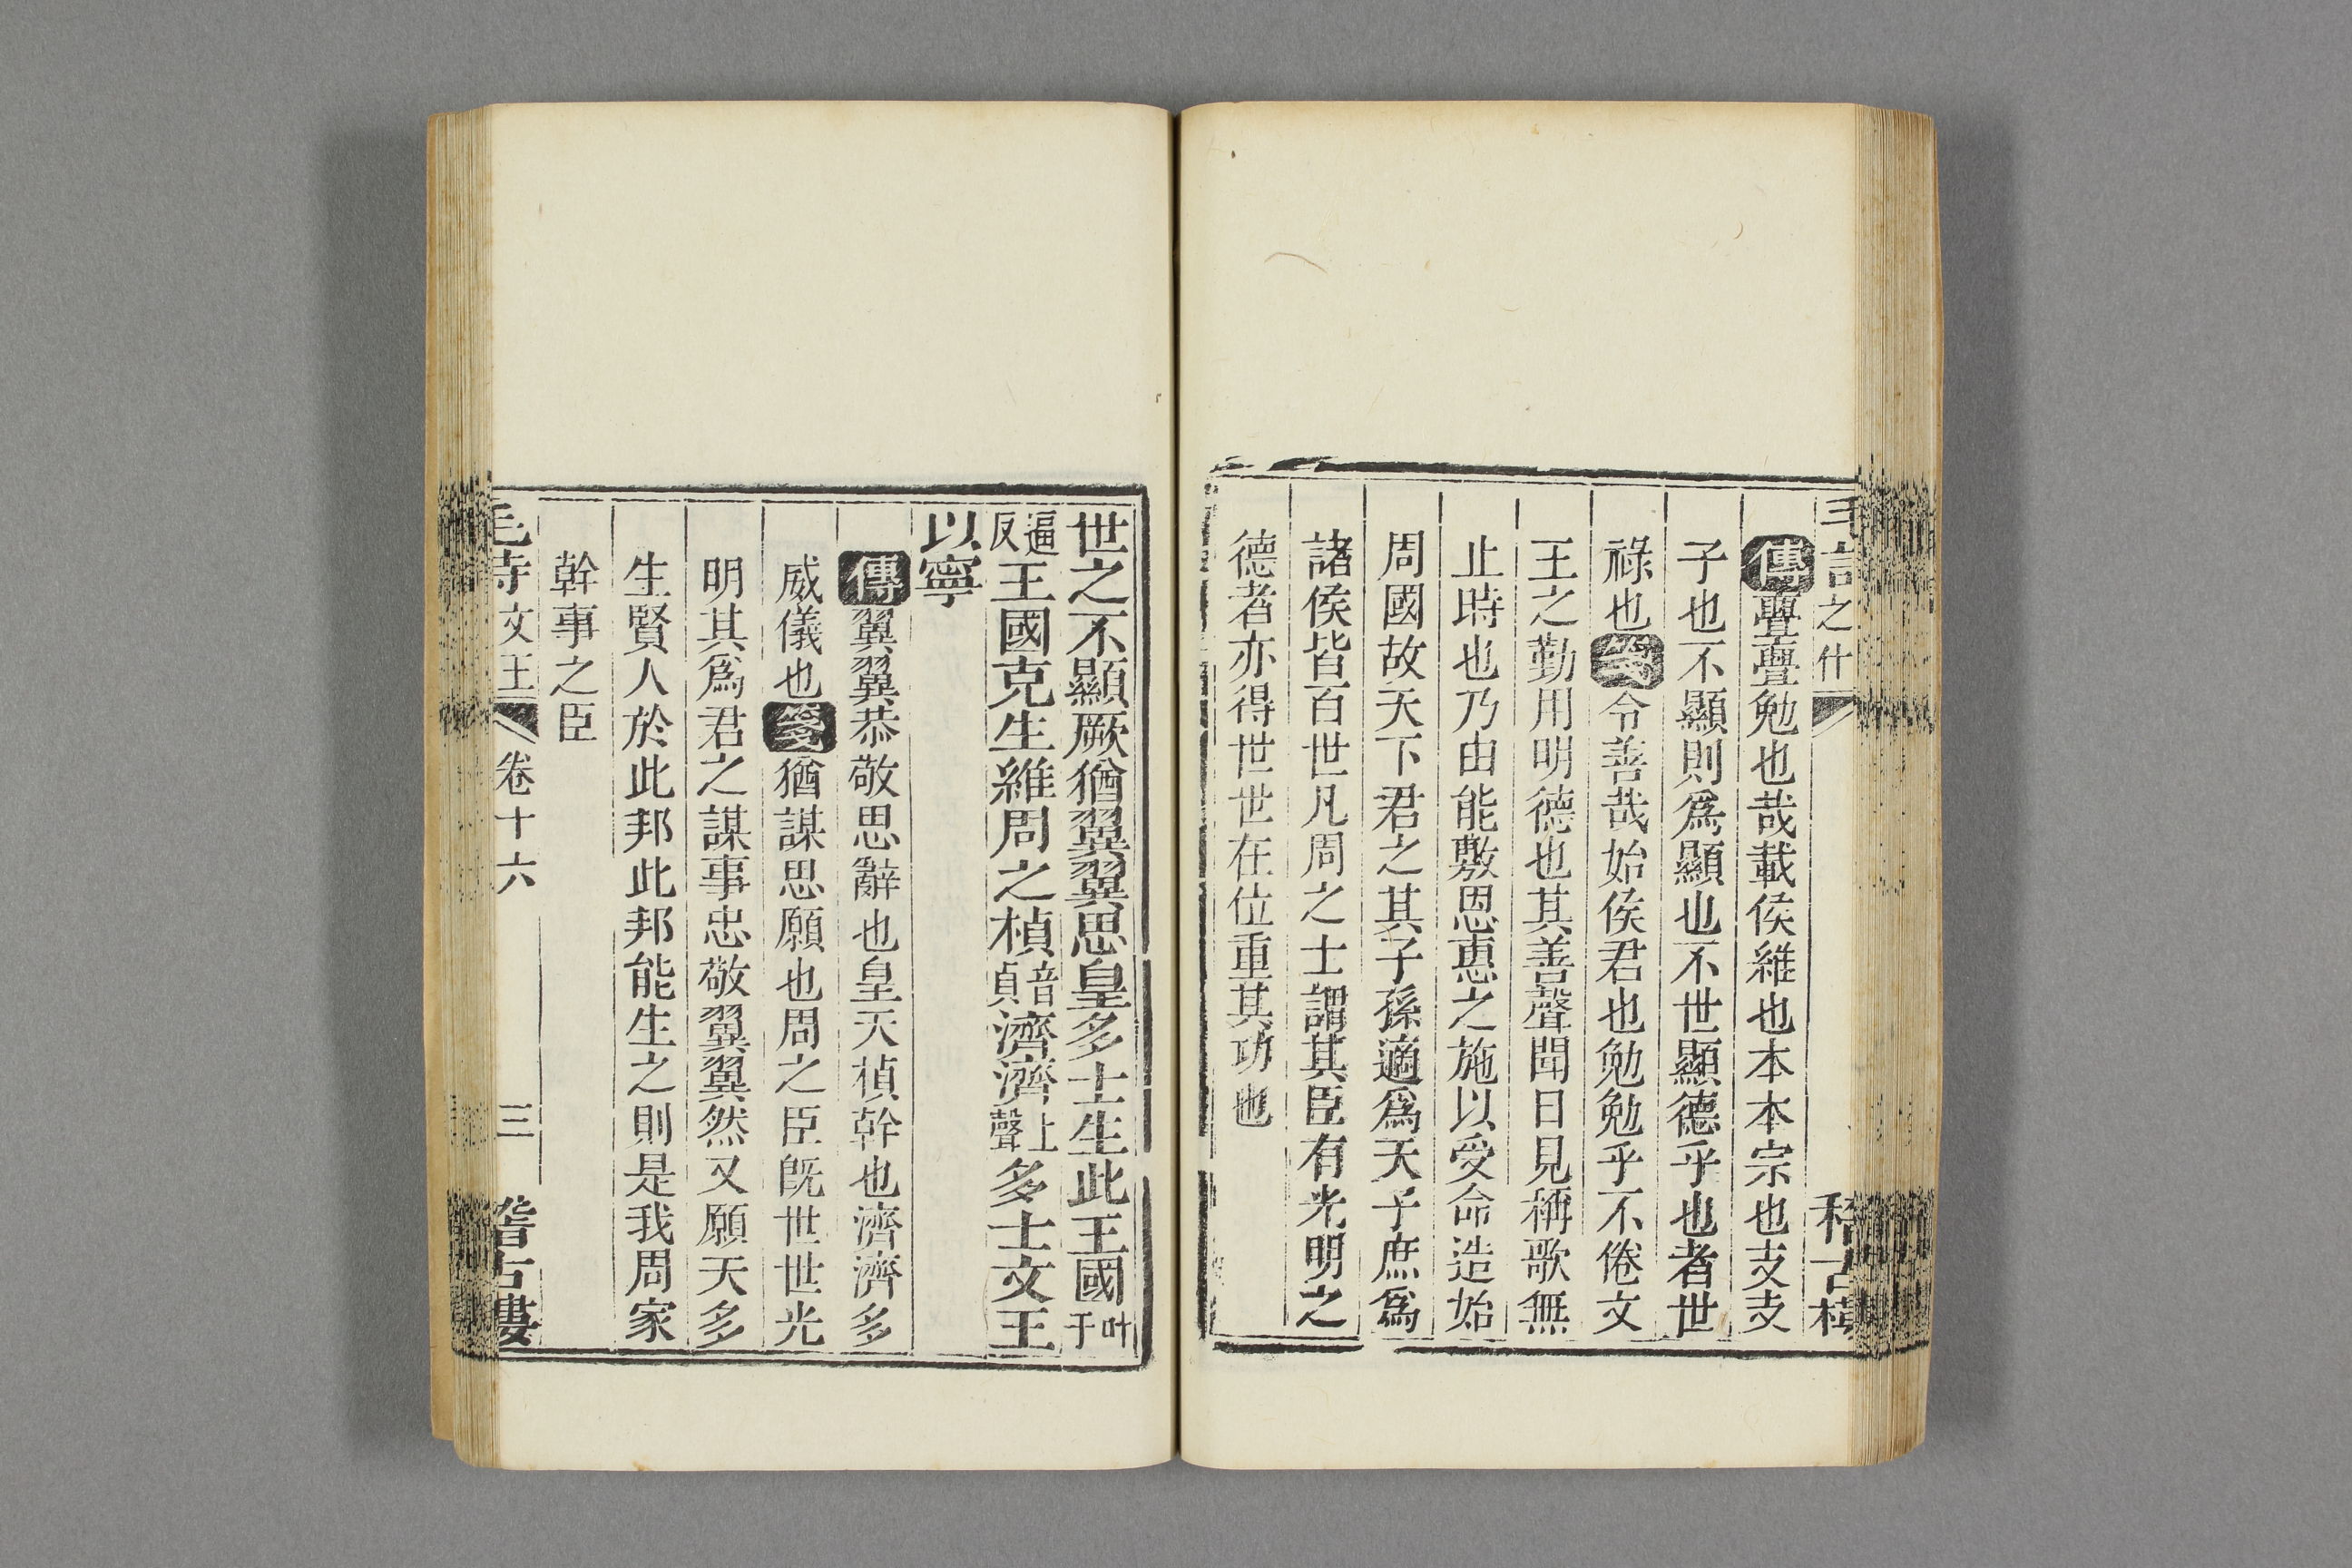 傳亹亹勉也哉載侯維也本本宗也支支
子也不顯則爲顯也不世顯德乎也者世
祿也箋令善哉始侯君也勉勉乎不倦文
王之勤用明德也其善聲聞日見稱歌無
止時也乃由能敷恩惠之施以受命造始
周國故天下君之其子孫適爲天子庶爲
諸侯皆百世凡周之士謂其臣有光明之
德者亦得世世在位重其功也
世之不顯厥猶翼翼思皇多士生此王國叶于
逼反王國克生維周之楨音貞濟濟上聲多士文王
以寧
傳翼翼恭敬思辭也皇天楨幹也濟濟多
威儀也箋猶謀思願也周之臣旣世世光
明其爲君之謀事忠敬翼翼然又願天多
生賢人於此邦此邦能生之則是我周家
幹事之臣
毛詩 文王 卷十六 三 稽古樓